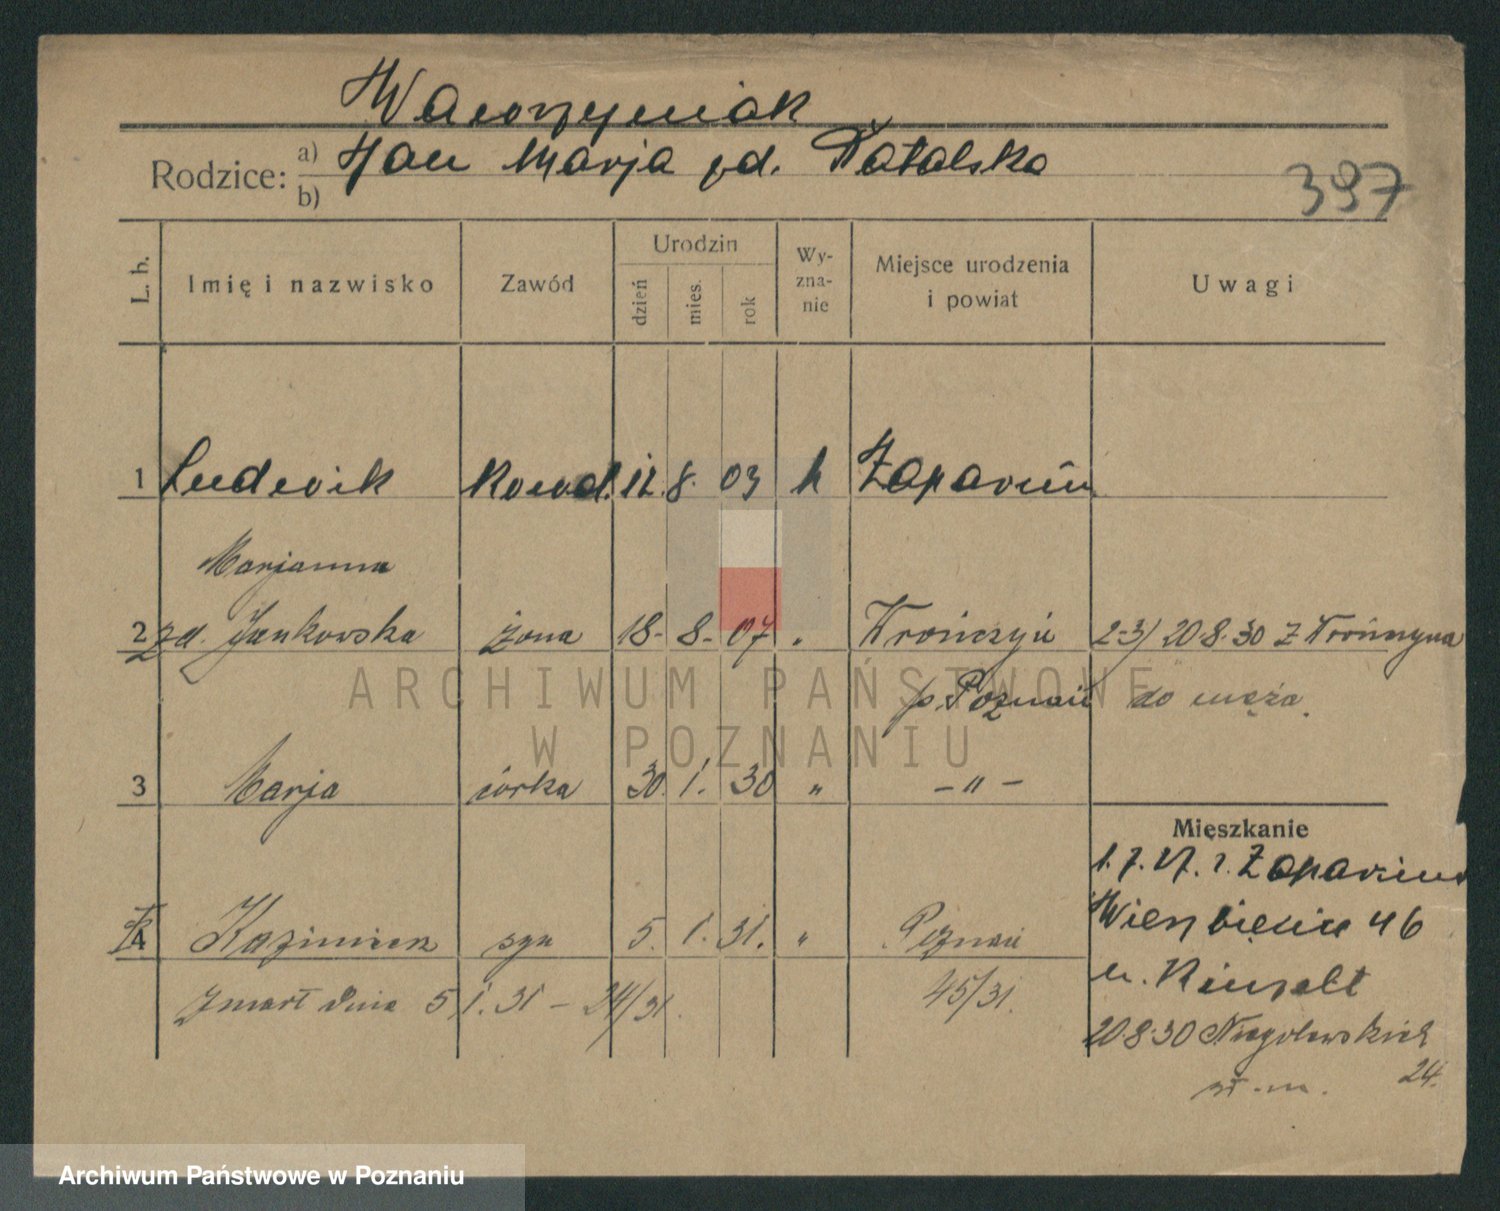 Wawrzyniak
Rodzice: a) Jan Marja zd. Ratalska
b)
397
L. b. Imię i nazwisko Zawód Urodzin dzień mies. rok Wy-zna-nie Miejsce urodzenia i powiat Uwagi
1 Ludwik kowal. 12. 8. 03 k
Marjanna
2 zd. Jankowska żona 18. 8. 07 " Krończyn 2-3) 20.8.30 z Krończyna
p. Poznań do męża.
ARCHIWUM PAŃSTWOWE
W POZNANIU
3 Marja córka 30. 1. 30 " - " -
Mieszkanie
1.7.27. z
4 Kazimierz syn 5. 1. 31. " Poznań
Wierzbięcice 46
Zmarł dnia 5.1.31 - 24/31. 45/31.
u.
20.8.30 Niegolewskich
24.
Archiwum Państwowe w Poznaniu